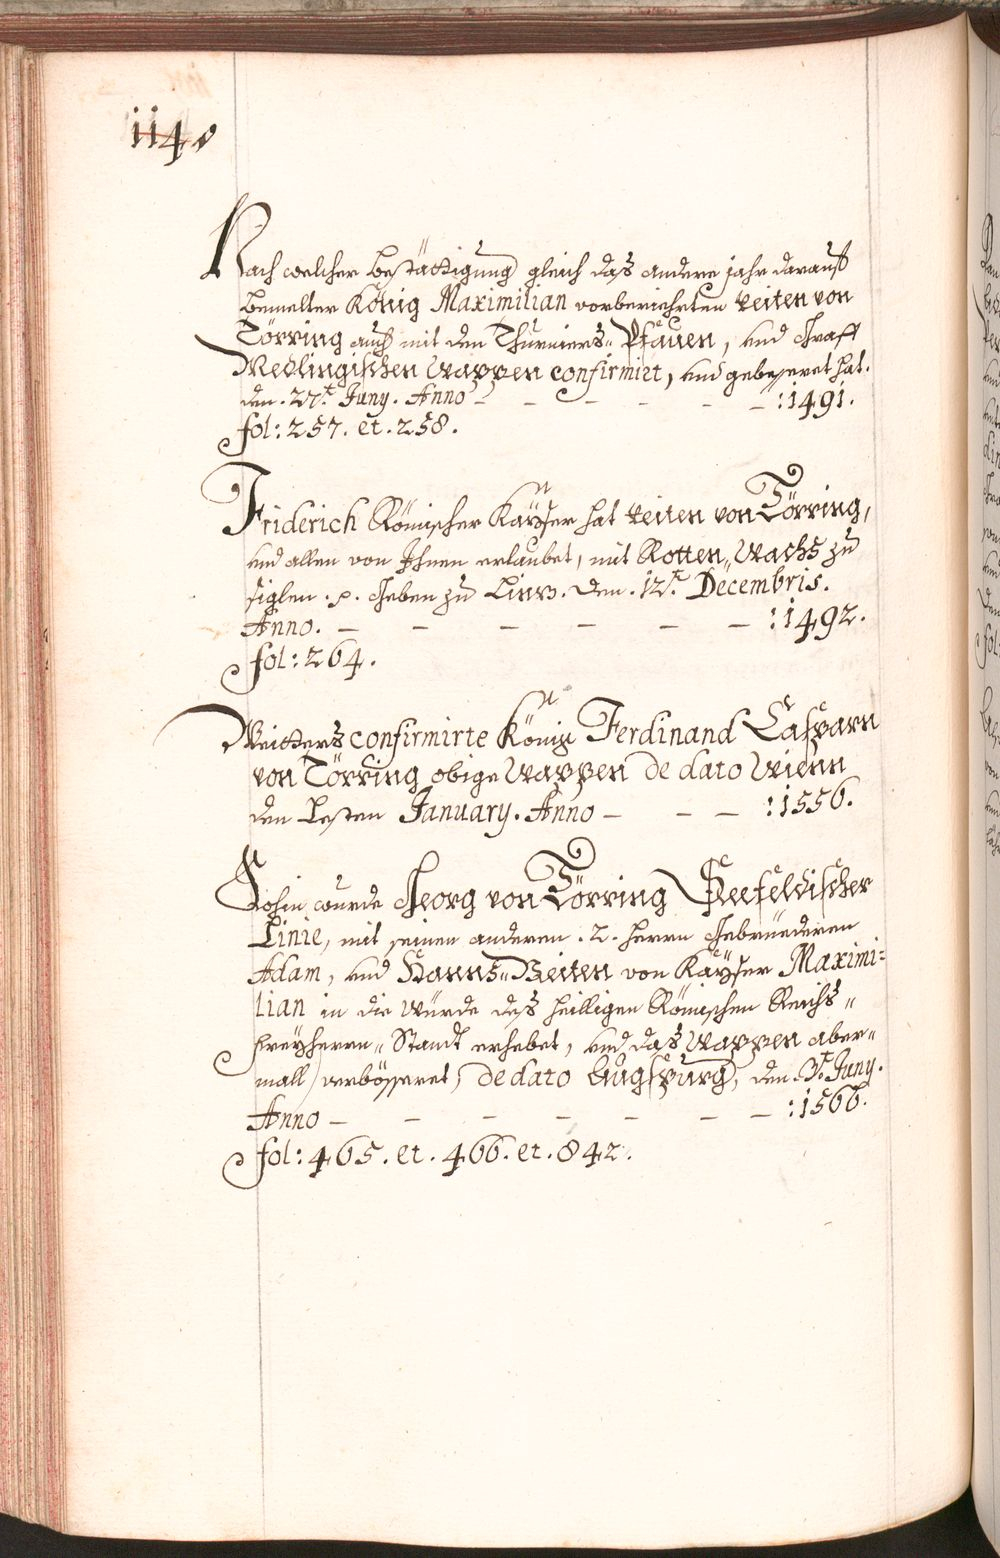 114
Nach welcher bestättigung gleich das andere jahr darauff
bemelter König Maximilian vorberiehrten Veiten von
Törring auch mit den Thurniers„ Pfauen, und Graff
Medlingischen Wappen confirmirt, und gebesseret hat.
den . 27.t Juny . Anno – – – – – – :1491.
fol: 257. et. 258.
Friderich Römischer Kayser hat Veiten von Törring,
und allen von Ihnen erlaubet, mit Rotten„ Wachs zu
siglen .p. Geben zu Linz. den . 12.t Decembris.
Anno. – – – – – – :1492.
fol: 264.
Weitters confirmirte König Ferdinand Casparn
von Törring obige Wappen de dato Wienn
den Lesten January. Anno – – – :1556.
Sohin wurde Georg von Törring Seefeldischer
Linie, mit seinen anderen .2. herrn Gebrüederen
Adam, und Hanns„ Veiten von Kayser Maximi=
lian in die würde des heilligen Römischen Reichs„
freyherrn„ Standt erhebet, und das Wappen aber„
mall verbösseret, de dato Augspurg, den .3.t Juny.
Anno – – – – – – – :1566.
fol: 465. et. 466. et. 842.